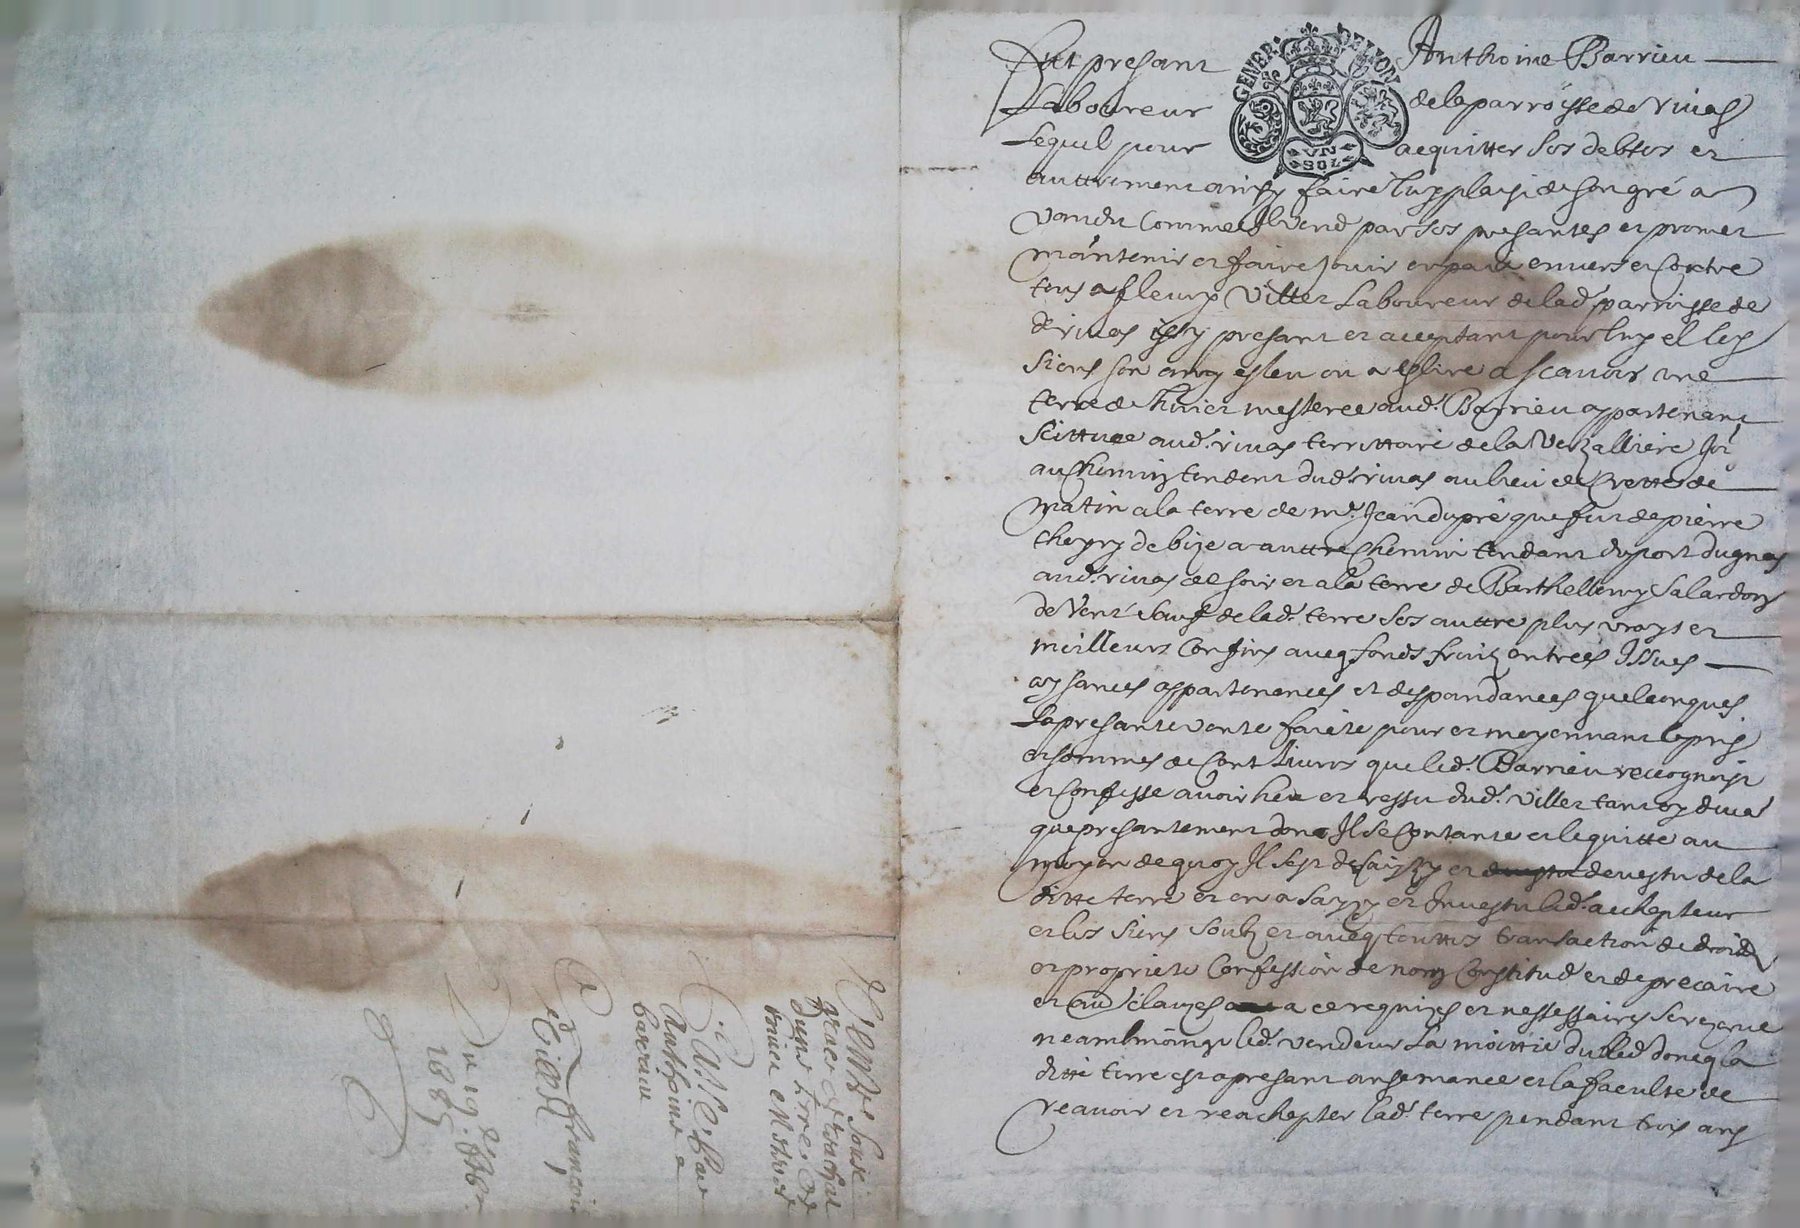 Fut presant Anthoine Barrieu
Laboureur de la parroisse de rivas
Lequel pour acquitter ses debtes et
auttrement ainsy faire luy plaist de son gré a
vandu comme Il vend par ses presantes et promet
maintenir et faire jouir en paix envers et contre
tous a fleury Villet Laboureur de lad. parroisse de
de rivas issy presant et acceptant pour luy et les
siens son amy esleu ou a eslire a scavoir une
terre de aud. Barrieu appartenant
scittuee aud. rivas territtoire de la
au chemin tendent dud. rivas au lieu de de
matin a la terre de me. Jean dupré que fut de pierre
de bize a auttre chemin tendant du port
aud. rivas de soir et a la terre de Barthellemy Salardon
de vent sauf de lad. terre ses auttre plus vrays et
meilleurs confins aveq fonds fruitz entrees Issues
aysances appartenences et despandances quelconques
La presante vante faicte pour et moyennant le pris
et sommes de cent livres que led. Barrieu recognoist
et confesse avoir heu et ressu dud. Villet tant cy devat
que presantement dont Il se contante et le quitte au
moyen de quoy Il sest desaisy et devestu de la
ditte terre et en a saysy et Investu led. achepteur
et les siens soubz et aveq touttes translaction de droictz
et propriete confession de nom constitud et de precaire
et aud clauzes a ce requizes et nessessaires se rezerve
neantmoings led. vendeur La moittié du bled doncq la
ditte terre est a presant ansemancee et la faculte de
reavoir et reachepter lad. terre pendant trois ans
Vante
dune terre
Anthoine
Barrieu
francois
Villet
Du 19.
1685